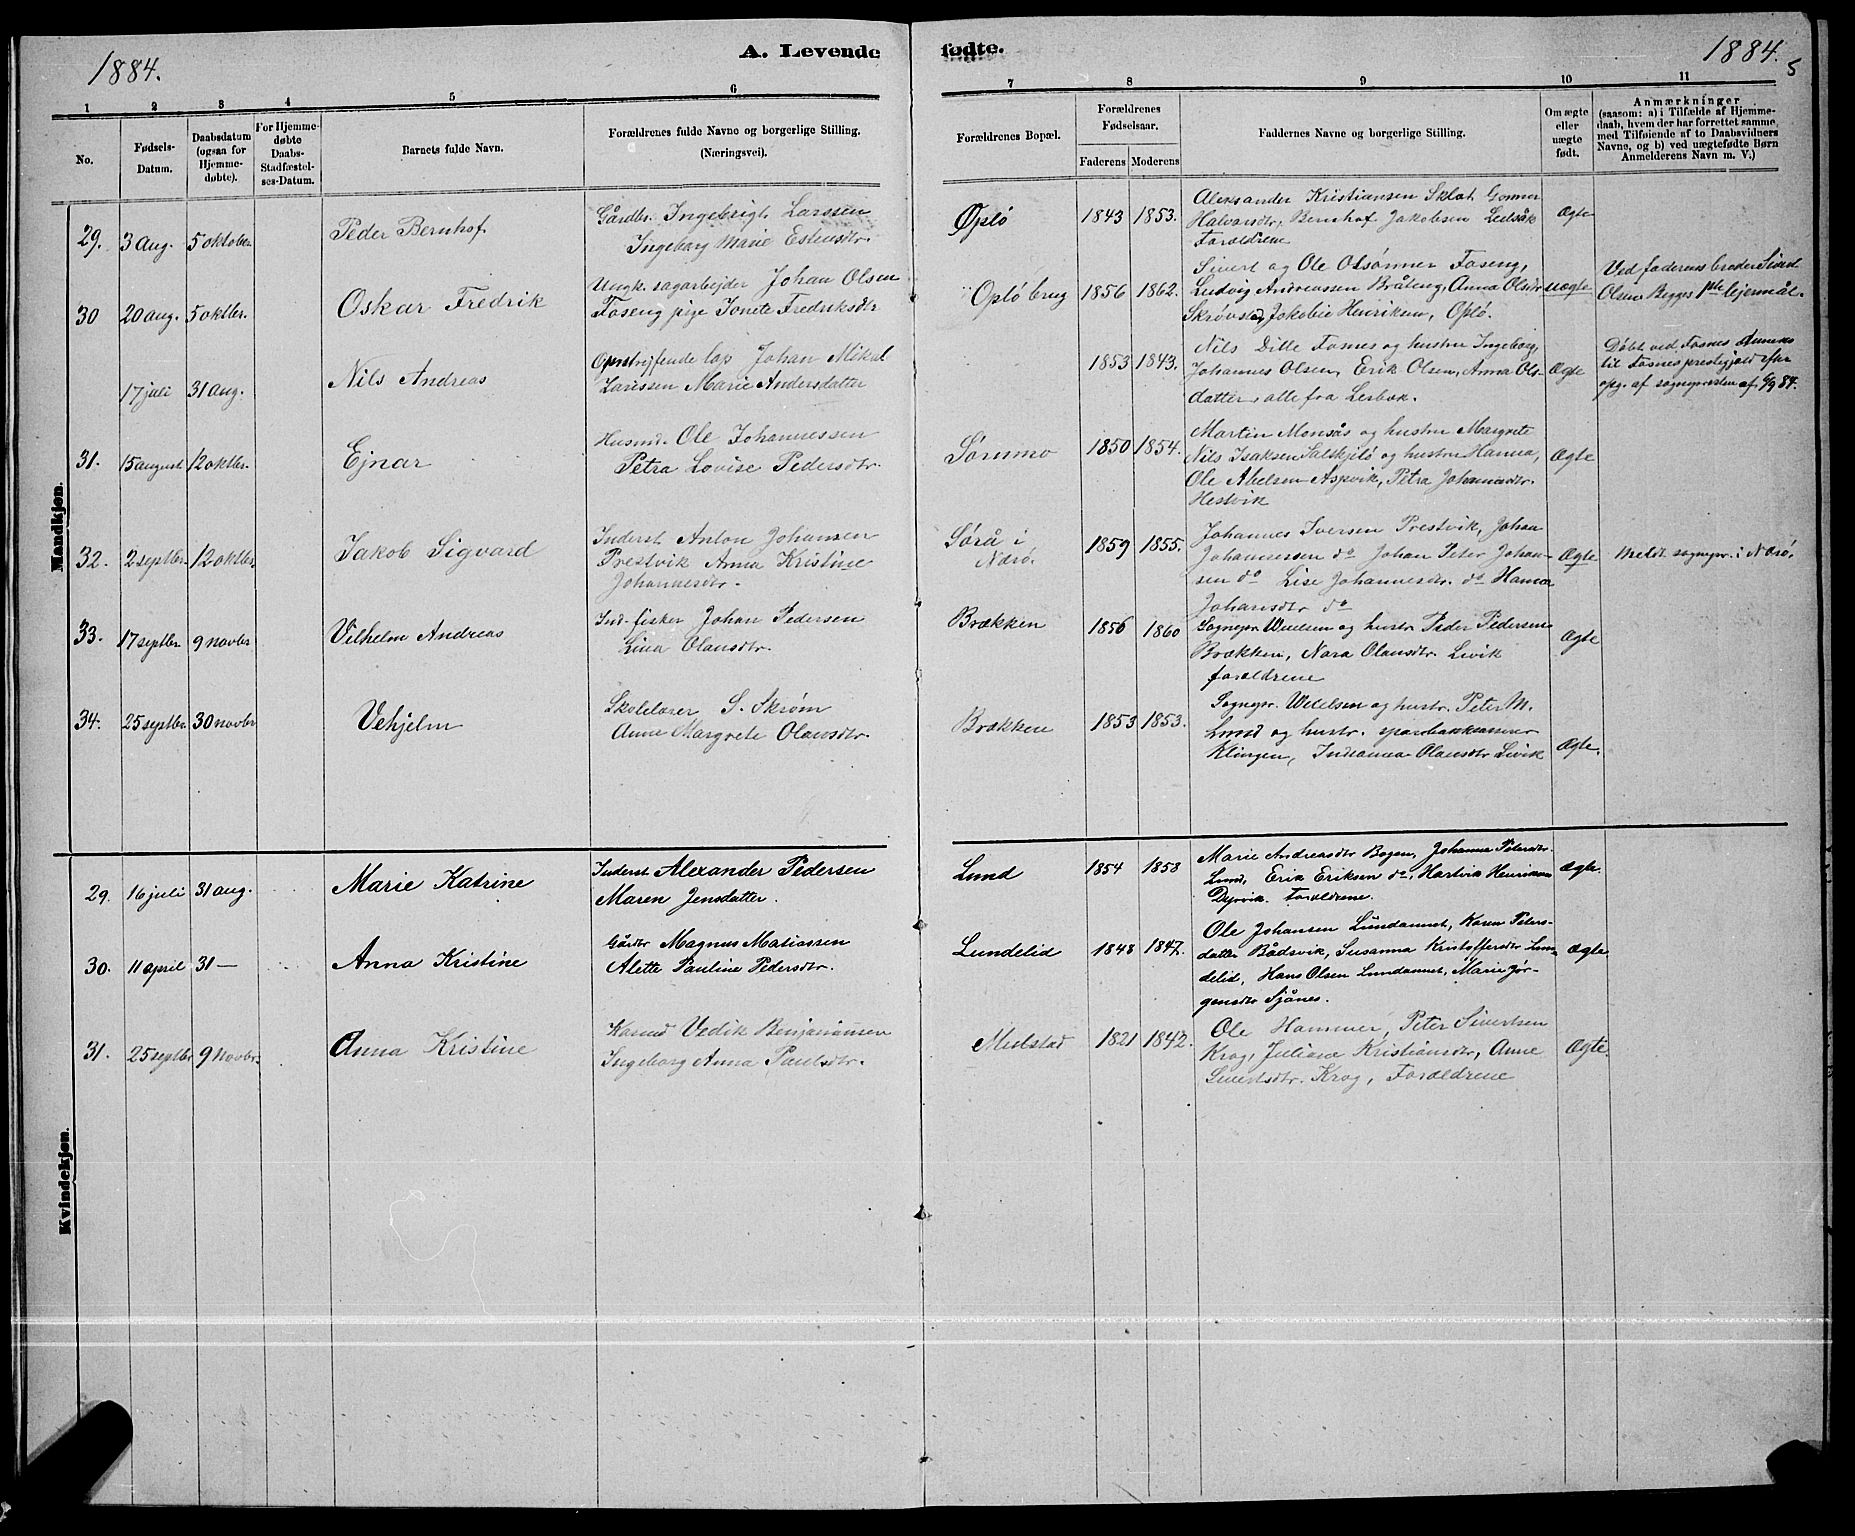 1884.
A. Levende fødte.
1884.
5
1 2 3 4 5 6 7 8 9 10 11
No.
Fødsels-Datum.
Daabsdatum (ogsaa for Hjemme-døbte).
For Hjemme-døbte Daabs-Stadfæstel-ses-Datum.
Barnets fulde Navn.
Forældrenes fulde Navne og borgerlige Stilling.
(Næringsvei).
Forældrenes Bopæl.
Forældrenes Fødselsaar.
Faderens Moderens
Faddernes Navne og borgerlige Stilling.
Om ægte eller uægte født.
Anmærkninger
(saasom: a) i Tilfælde af Hjemme-
daab, hvem der har forrettet samme,
med Tilføiende af to Daabsvidners
Navne, og b) ved uægtefødte Børn
Anmelderens Navn m. V.)
Mandkjøn.
29. 3 aug. 5 oktober Peder Bernhof
Gårdbr. Ingebrigt Larssen
Ingeborg Marie Estensdtr.
Oplø 1843 1853.
Aleksander Kristiansen Sklat Gonner
Halvorsdtr, Bernhof Jakobsen
Forældrene
Ægte
30 20 aug. 5 oktbr. Oskar Fredrik
Ungk. sagarbejder Johan Olsen
Foseng pige Jonete Fredriksdtr
Opløbrug 1856 1862.
Sivert og Ole Olsønner Foseng,
Ludvig Andreassen Bråteng, Anna Olsdtr
Skrøvstad, Jakobie Henriksen, Oplø.
uægte
Ved faderens broder Sivert
Olsen Begges 1ste lejermål.
17 juli 31 aug. Nils Andreas
Omstrejfende lap Johan Mikal
Larssen Marie Andersdatter
1853 1843.
Nils Dille Fosnes og hustru Ingeborg,
Johannes Olsen, Erik Olsen, Anna Ols-
datter, alle fra Lesbæk.
Ægte
Døbt ved Fosnes Anneks
til Fosnes prestegjæld efter
opg. af sognepresten af 6/9 84.
31. 15 august 12 oktbr. Ejnar
Husmd. Ole Johannessen
Petra Lovise Pedersdtr.
Sørumo 1850 1854.
Martin Monsås og hustru Margrete
Nils Isaksen Salskjelø og hustru Hanna,
Ole Abelsen Aspvik, Petra Johannesdtr.
Hestvik
Ægte
32. 2 septbr. 12 oktbr. Jakob Sigvard
Inderst Anton Johansen
Prestvik Anna Kristine
Johannesdtr.
Sørå i
Nærø.
1859 1855.
Johannes Iversen Prestvik, Johan
Johannessen do Johan Peter Johan-
sen do Lise Johannesdtr. do Hanna
Johansdtr do
Ægte
Meldt sognepr. i Nærø.
33. 17 septbr. 9 novbr Vilhelm Andreas
Ind. fisker Johan Pedersen
Lina Olausdtr.
Brækken 1856 1860
Sognepr Wetelsen og hustr Peder Pedersen
Brækken, Nora Olausdtr. Livik
forældrene
Ægte
34. 25 septbr. 30 novbr Vehjelm
Skolelærer S. Skrøm
Anne Margrete Olausdtr.
Brækken 1853 1853.
Sognepr. Wetelsen og hustr. Peter M.
Lund og hustr. sparebankkasserer
Klingen, Indianna Olausdtr Livik
Ægte.
Kvindekjøn.
29. 16 juli 31 aug. Marie Katrine
Inderst Alexander Pedersen
Maren Jensdatter.
Lund 1854 1853
Marie Andreasdtr Bogen, Johanna Petersdtr.
Lund, Erik Eriksen do, Hartvik Henriksen
Dyrvik. Forældrene.
Ægte.
30. 11 april 31 — Anna Kristine
Gårdbr Magnus Matiassen
Alette Pauline Pedersdtr.
Lundelid 1848 1847.
Ole Johansen Lundamnet, Karen Peters-
datter Bådsvik, Susanna Kristoffersdtr Lun-
delid, Hans Olsen Lundamnet, Marie Jør-
gensdtr Sjånes.
Ægte
31. 25 septbr 9 novbr. Anna Kristine
Vedik Benjaminsen
Ingeborg Anna Paulsdtr.
Mulstad 1821 1842.
Ole Hammer, Peter Sivertsen
Krog, Juliana Kristiansdtr, Anne
Sivertsdtr. Krog, Forældrene
Ægte